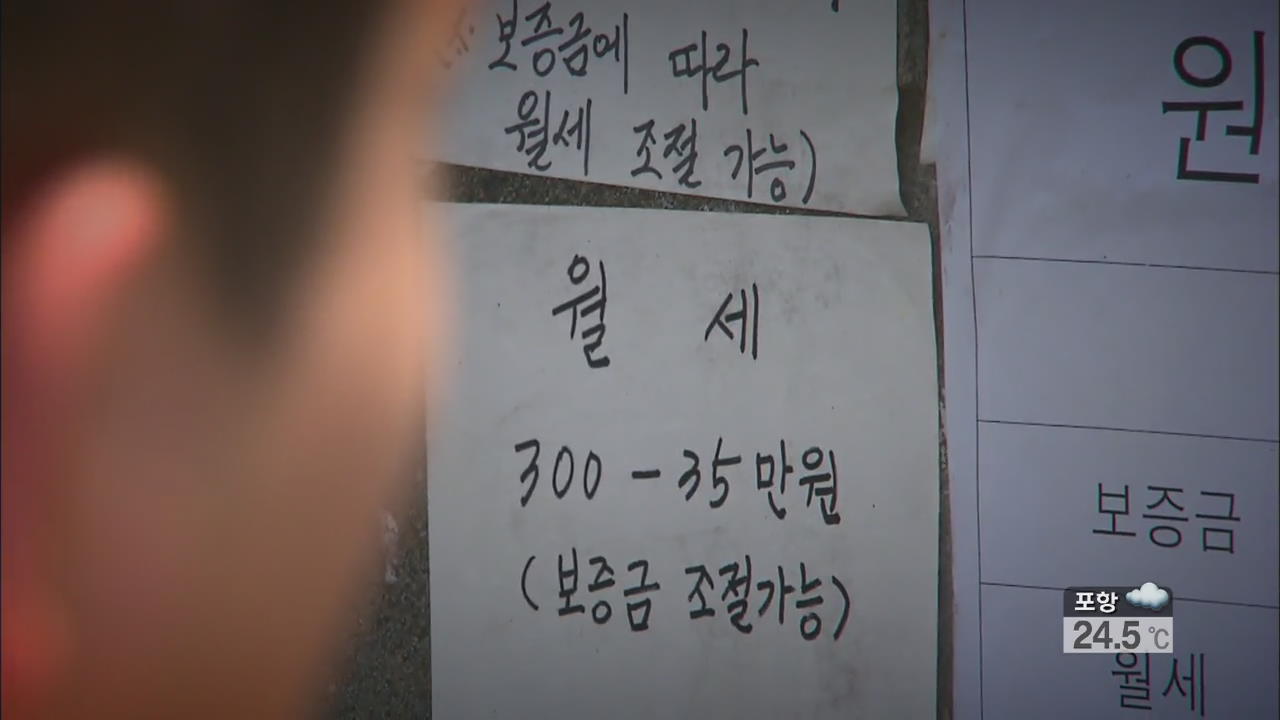 보증금에 따라
월세 조절 가능)
월 세
300 - 35만원
(보증금 조절가능)
원
보증금
월세
포항
24.5℃